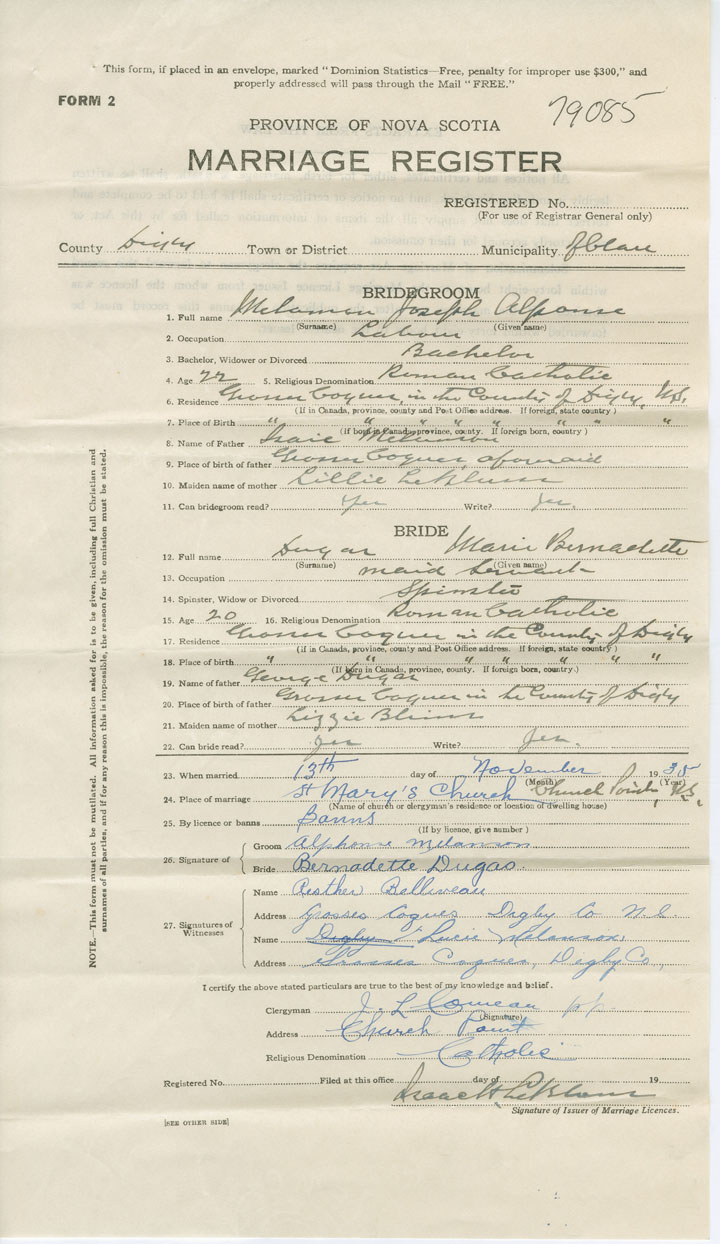 This form, if placed in an envelope, marked "Dominion Statistics—Free, penalty for improper use $300," and
properly addressed will pass through the Mail "FREE."
FORM 2
79085
PROVINCE OF NOVA SCOTIA
MARRIAGE REGISTER
REGISTERED No.
(For use of Registrar General only)
County Digby Town or District Municipality of Clare
BRIDEGROOM
1. Full name Melanson Joseph Alponse
(Surname) (Given name)
2. Occupation Labour
3. Bachelor, Widower or Divorced Bachelor
4. Age 22 5. Religious Denomination Roman Catholic
6. Residence Grosses Coques, in the County of Digby, N.S.
(If in Canada, province, county and Post Office address. If foreign, state country)
7. Place of Birth " " " " " " " "
(If born in Canada, province, county. If foreign born, country)
8. Name of Father Isaie Melanson
9. Place of birth of father Grosses Coques, aforesaid
10. Maiden name of mother Lillie LeBlanc
11. Can bridegroom read? Yes Write? Yes.
BRIDE
12. Full name Dugas Marie Bernadette
(Surname) (Given name)
13. Occupation maid Servant
14. Spinster, Widow or Divorced Spinster
15. Age 20 16. Religious Denomination Roman Catholic
17. Residence Grosses Coques in the County of Digby
(If in Canada, province, county and Post Office address. If foreign, state country)
18. Place of birth " " " " " " "
(If born in Canada, province, county. If foreign born, country.)
19. Name of father George Dugas
20. Place of birth of father Grosses Coques in the County of Digby
21. Maiden name of mother Lizzie
22. Can bride read? Yes Write? Yes.
23. When married 13th day of November 1935
(Month) (Year)
24. Place of marriage St Mary's Church Church Point, N.S.
(Name of church or clergyman's residence or location of dwelling house)
25. By licence or banns Banns
(If by licence, give number)
26. Signature of
Groom Alphonse Melanson
Bride Bernadette Dugas
27. Signatures of Witnesses
Name Belliveau
Address Grosses Coques Digby Co N.S.
Name Digby Lucie Melanson
Address Grosses Coques, Digby Co,
I certify the above stated particulars are true to the best of my knowledge and belief.
Clergyman J. L. Comeau p.p.
(Signature)
Address Church Point
Religious Denomination Catholic
Registered No. Filed at this office day of 19
Isaac H LeBlanc
Signature of Issuer of Marriage Licences.
[SEE OTHER SIDE]
NOTE.—This form must not be mutilated. All information asked for is to be given, including full Christian and
surnames of all parties, and if for any reason this is impossible, the reason for the omission must be stated.